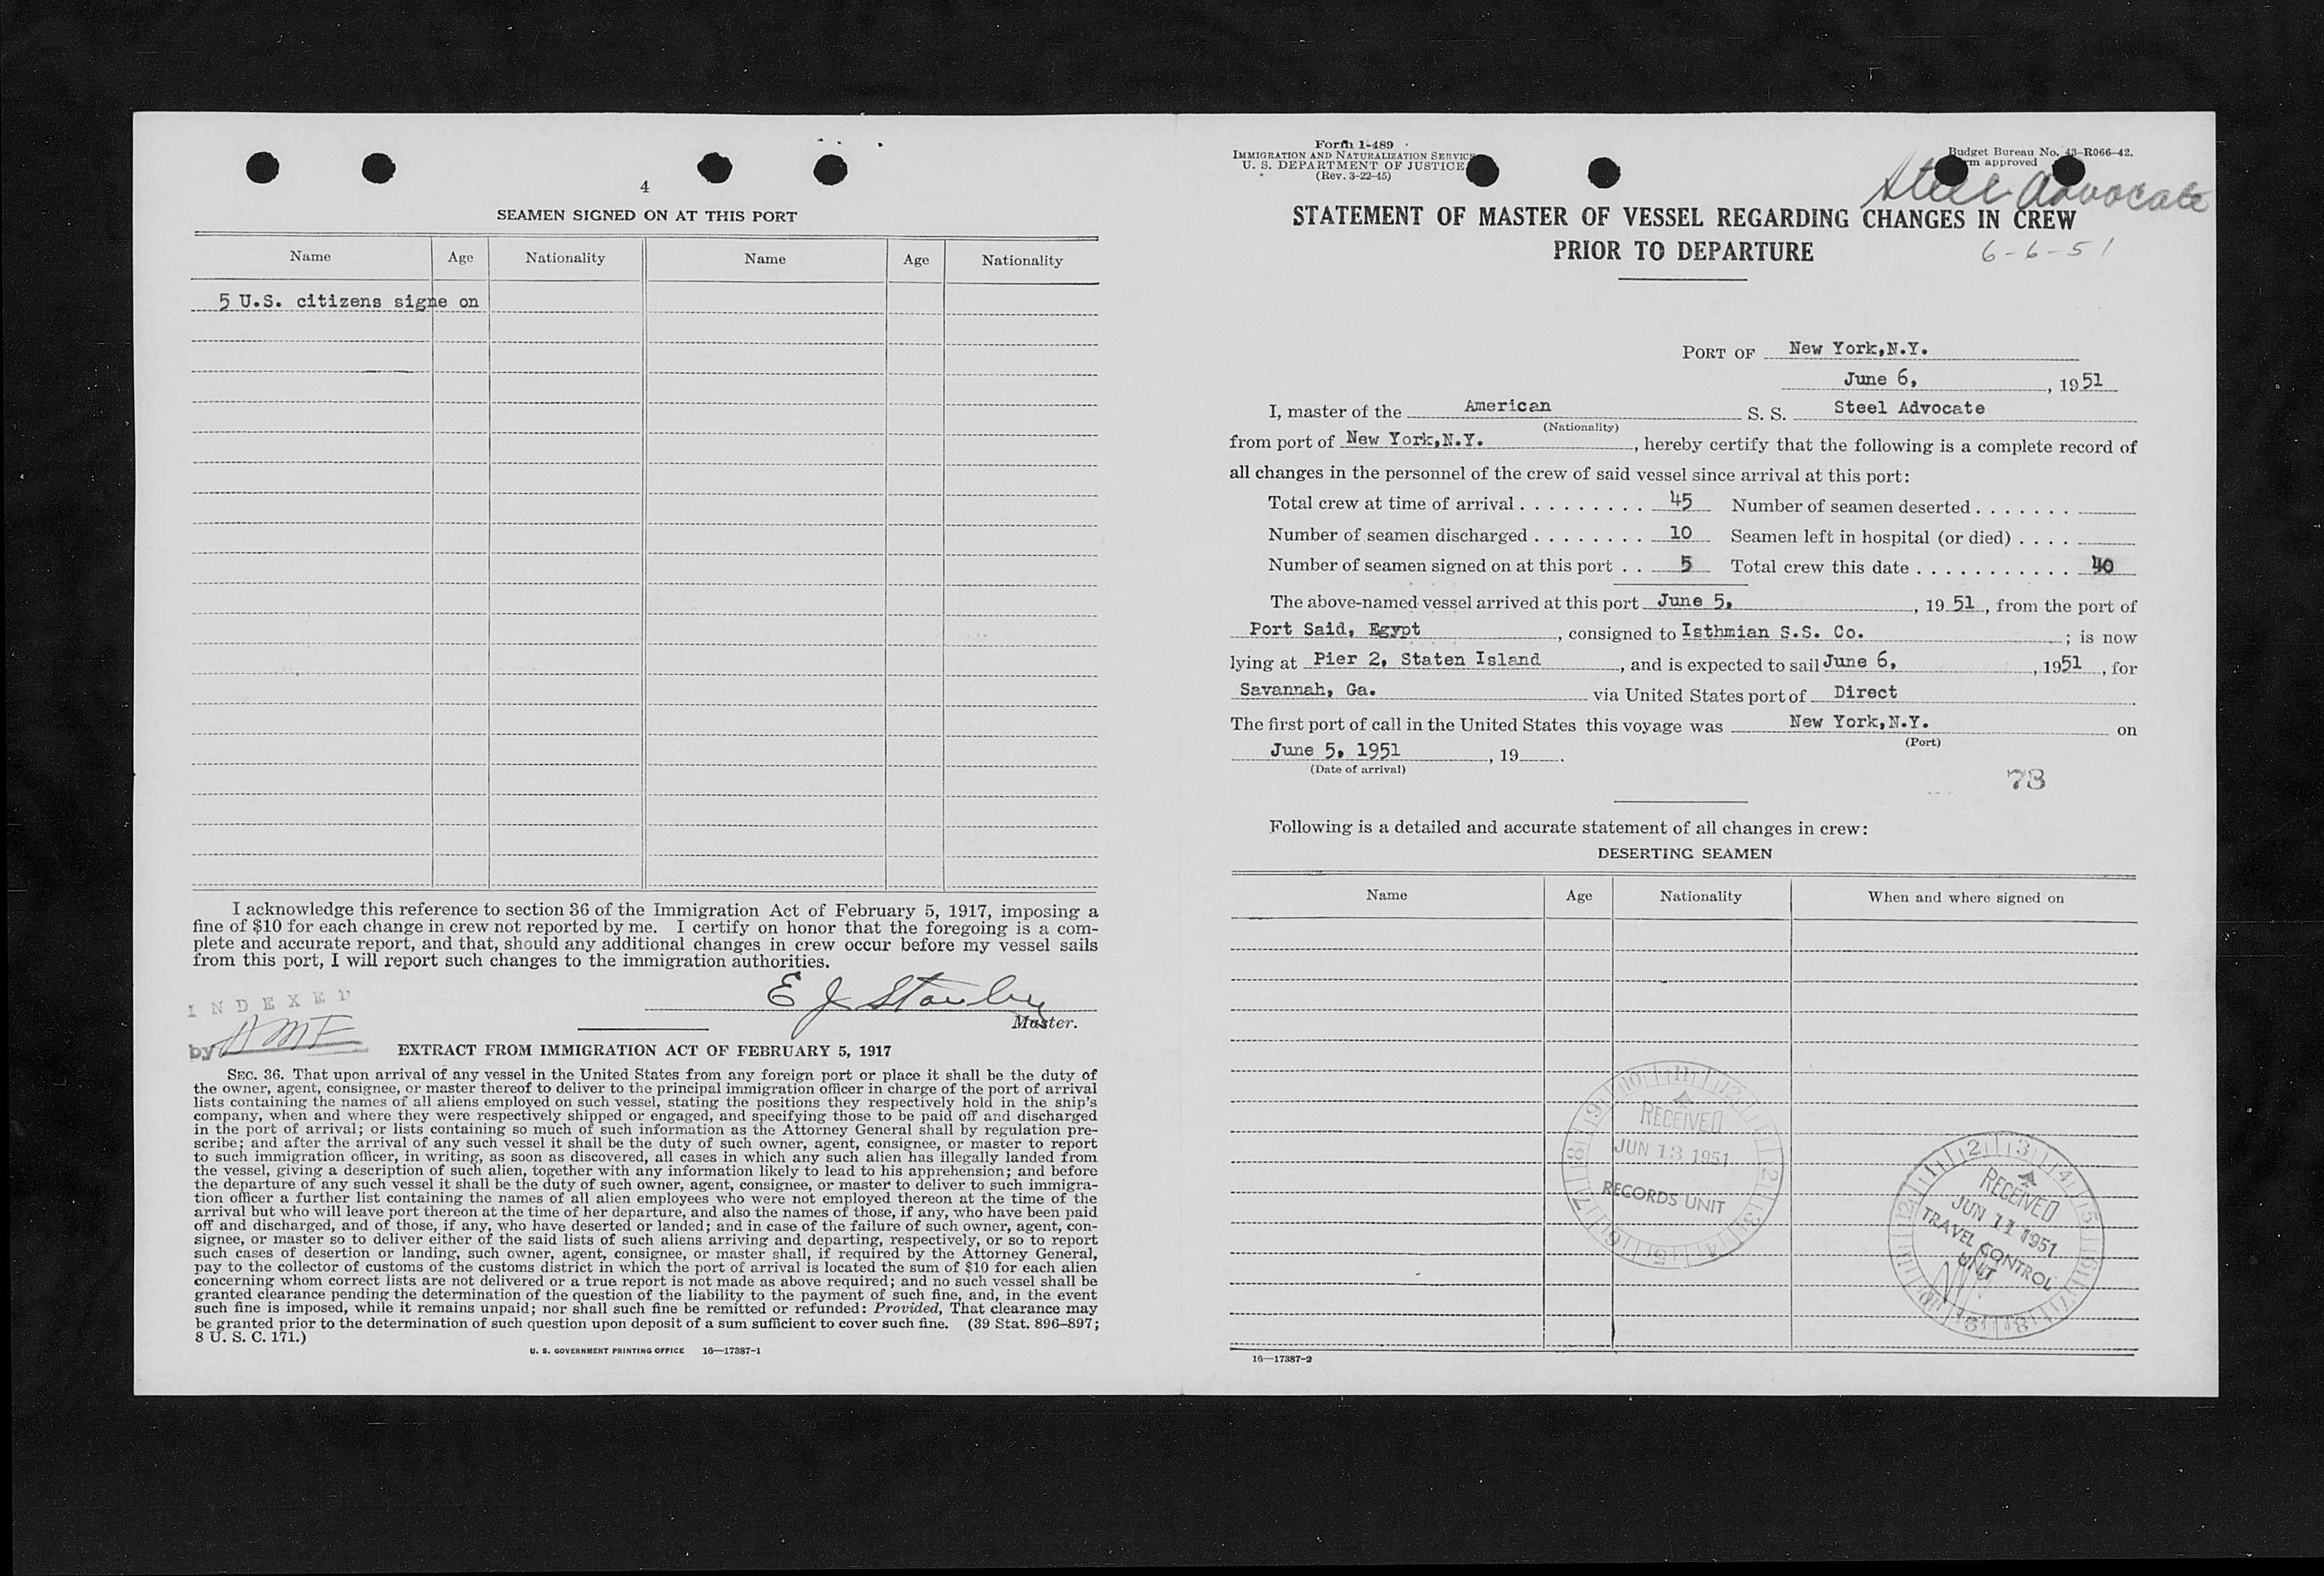 4
SEAMEN SIGNED ON AT THIS PORT
Name Age Nationality Name Age Nationality
5 U.S. citizens signe on
I acknowledge this reference to section 36 of the Immigration Act of February 5, 1917, imposing a
fine of $10 for each change in crew not reported by me. I certify on honor that the foregoing is a com-
plete and accurate report, and that, should any additional changes in crew occur before my vessel sails
from this port, I will report such changes to the immigration authorities.
E J Stanley
Master.
INDEXED
by AMF
EXTRACT FROM IMMIGRATION ACT OF FEBRUARY 5, 1917
SEC. 36. That upon arrival of any vessel in the United States from any foreign port or place it shall be the duty of
the owner, agent, consignee, or master thereof to deliver to the principal immigration officer in charge of the port of arrival
lists containing the names of all aliens employed on such vessel, stating the positions they respectively hold in the ship's
company, when and where they were respectively shipped or engaged, and specifying those to be paid off and discharged
in the port of arrival; or lists containing so much of such information as the Attorney General shall by regulation pre-
scribe; and after the arrival of any such vessel it shall be the duty of such owner, agent, consignee, or master to report
to such immigration officer, in writing, as soon as discovered, all cases in which any such alien has illegally landed from
the vessel, giving a description of such alien, together with any information likely to lead to his apprehension; and before
the departure of any such vessel it shall be the duty of such owner, agent, consignee, or master to deliver to such immigra-
tion officer a further list containing the names of all alien employees who were not employed thereon at the time of the
arrival but who will leave port thereon at the time of her departure, and also the names of those, if any, who have been paid
off and discharged, and of those, if any, who have deserted or landed; and in case of the failure of such owner, agent, con-
signee, or master so to deliver either of the said lists of such aliens arriving and departing, respectively, or so to report
such cases of desertion or landing, such owner, agent, consignee, or master shall, if required by the Attorney General,
pay to the collector of customs of the customs district in which the port of arrival is located the sum of $10 for each alien
concerning whom correct lists are not delivered or a true report is not made as above required; and no such vessel shall be
granted clearance pending the determination of the question of the liability to the payment of such fine, and, in the event
such fine is imposed, while it remains unpaid; nor shall such fine be remitted or refunded: Provided, That clearance may
be granted prior to the determination of such question upon deposit of a sum sufficient to cover such fine. (39 Stat. 896–897;
8 U. S. C. 171.)
U. S. GOVERNMENT PRINTING OFFICE 16—17387-1
Form I-489
IMMIGRATION AND NATURALIZATION SERVICE
U. S. DEPARTMENT OF JUSTICE
(Rev. 3-22-45)
Budget Bureau No. 43-R066-42.
approved
Steel Advocate
STATEMENT OF MASTER OF VESSEL REGARDING CHANGES IN CREW
PRIOR TO DEPARTURE
6-6-51
PORT OF New York,N.Y.
June 6, , 1951
I, master of the American S. S. Steel Advocate
(Nationality)
from port of New York,N.Y. , hereby certify that the following is a complete record of
all changes in the personnel of the crew of said vessel since arrival at this port:
Total crew at time of arrival . . . . . . . . . 45 Number of seamen deserted . . . . . . .
Number of seamen discharged . . . . . . . . 10 Seamen left in hospital (or died) . . . .
Number of seamen signed on at this port . . 5 Total crew this date . . . . . . . . . . . 40
The above-named vessel arrived at this port June 5, , 19 51 , from the port of
Port Said, Egypt , consigned to Isthmian S.S. Co. ; is now
lying at Pier 2, Staten Island , and is expected to sail June 6, , 1951 , for
Savannah, Ga. via United States port of Direct
The first port of call in the United States this voyage was New York,N.Y. on
(Port)
June 5, 1951 , 19 .
(Date of arrival)
73
Following is a detailed and accurate statement of all changes in crew:
DESERTING SEAMEN
Name Age Nationality When and where signed on
RECEIVED
JUN 13 1951
RECORDS UNIT
RECEIVED
JUN 11 1951
TRAVEL CONTROL
UNIT
16—17387-2